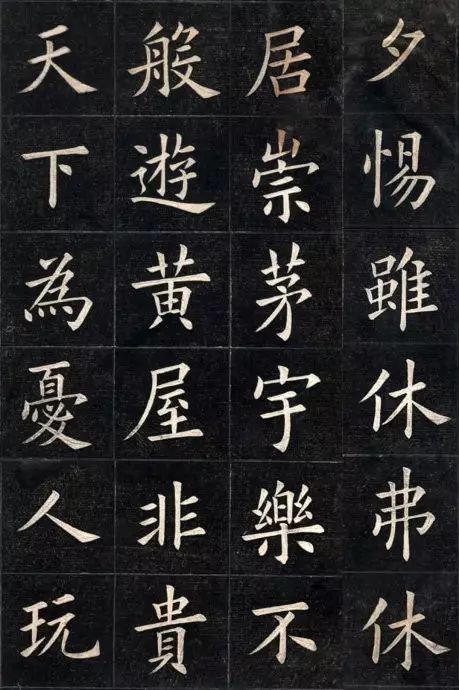 夕惕雖休弗休
居崇茅宇樂不
般遊黃屋非貴
天下為憂人玩